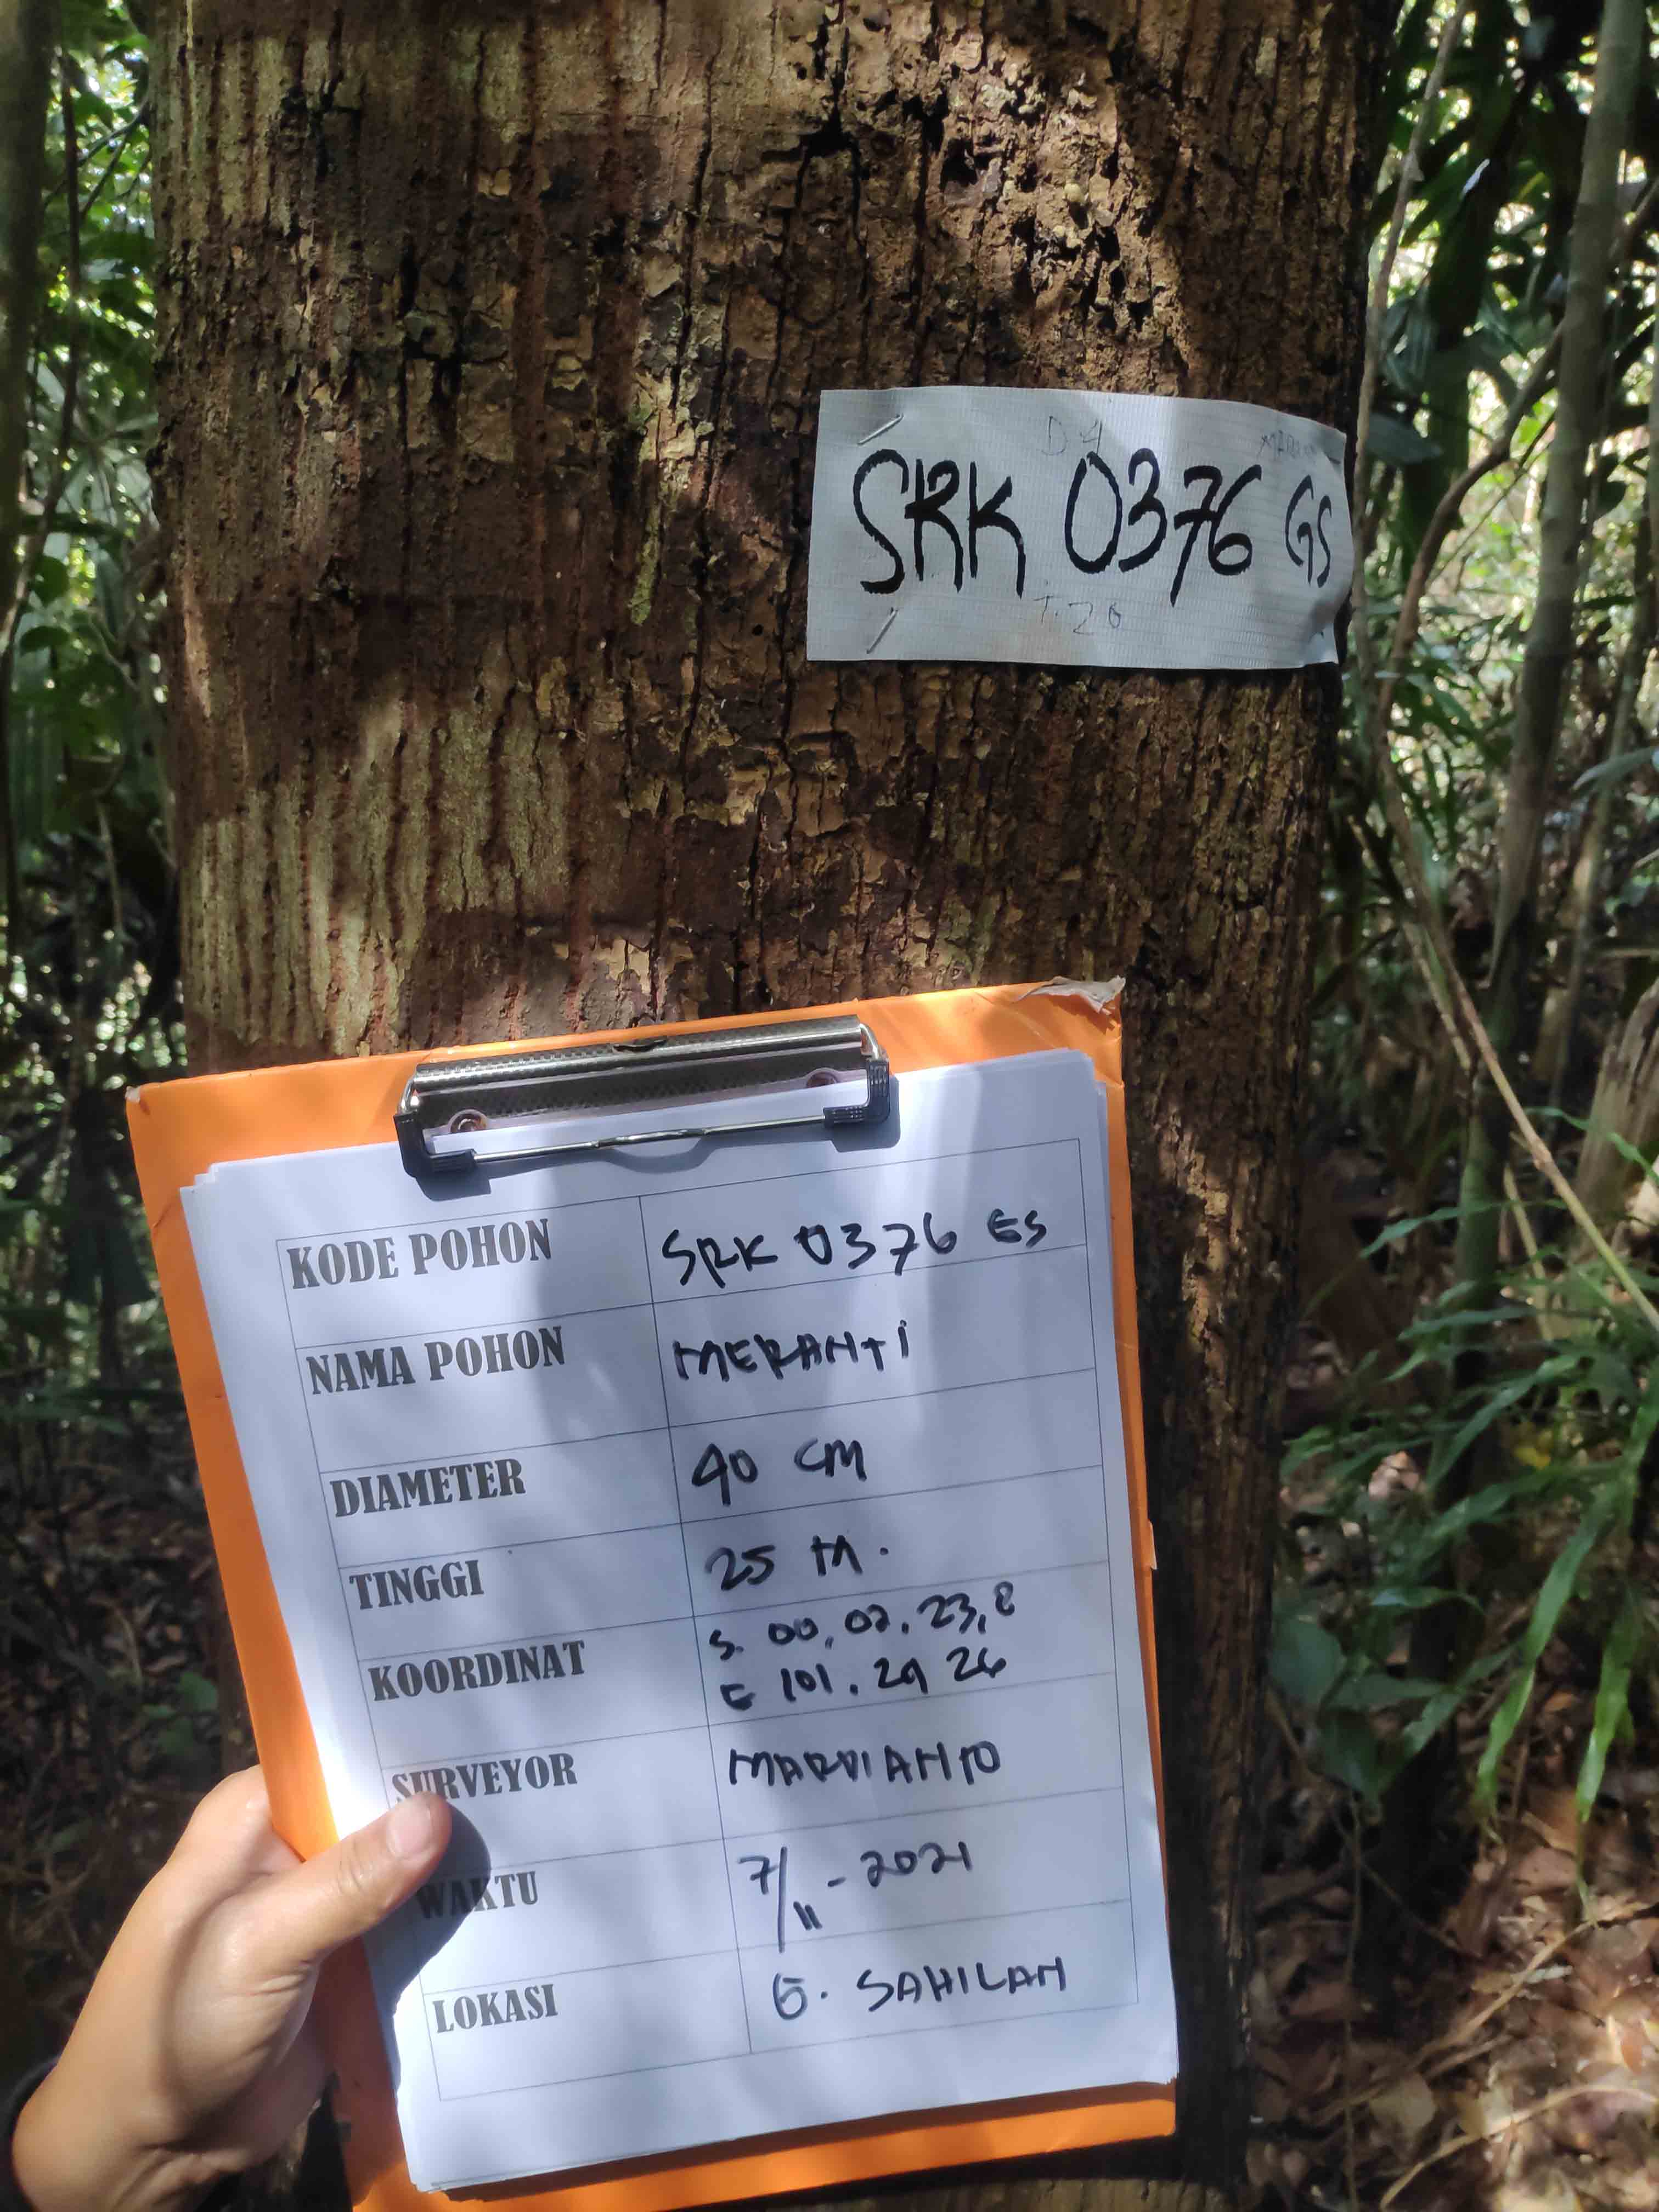 D 4
SRK 0376 GS
T. 26
KODE POHON SRK 0376 GS
NAMA POHON MERANTI
DIAMETER 40 CM
TINGGI 25 M.
KOORDINAT S. 00, 02. 23,8
E 101. 29 26
SURVEYOR MARDIANTO
WAKTU 7/11-2021
LOKASI G. SAHILAN